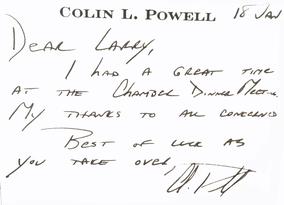 COLIN L. POWELL 18 JAN
DEAR LARRY,
I HAD A GREAT TIME
AT THE CHAMBER DINNER MEETING.
MY THANKS TO ALL CONCERNED
BEST OF LUCK AS
YOU TAKE OVER,